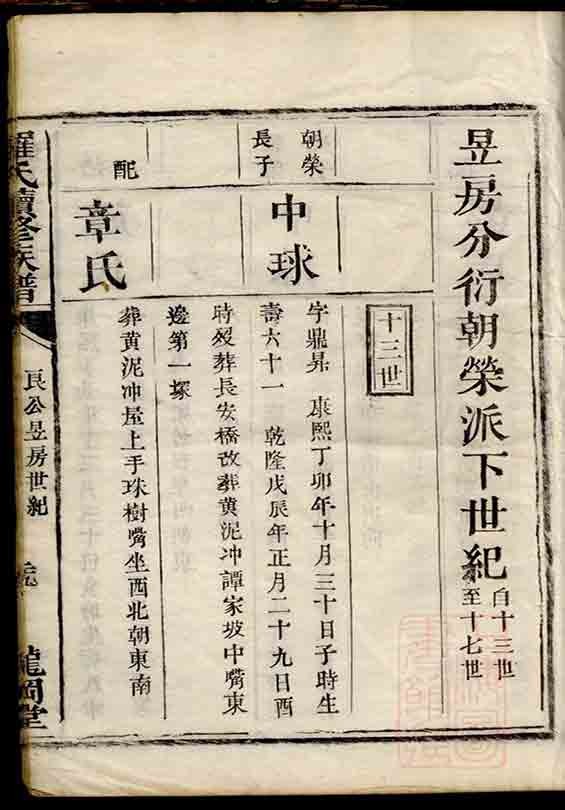 昱房分衍朝榮派下世紀 自十三世至十七世
十三世
朝榮長子
中球
字鼎昇 康熙丁卯年十月三十日子時生
壽六十一 乾隆戊辰年正月二十九日酉
時歿葬長安橋改葬黄泥冲譚家坡中嘴東
邊第一塚
配
章氏
葬黄泥冲屋上手珠樹嘴坐西北朝東南
羅氏續修族譜
良公昱房世紀
龍岡堂